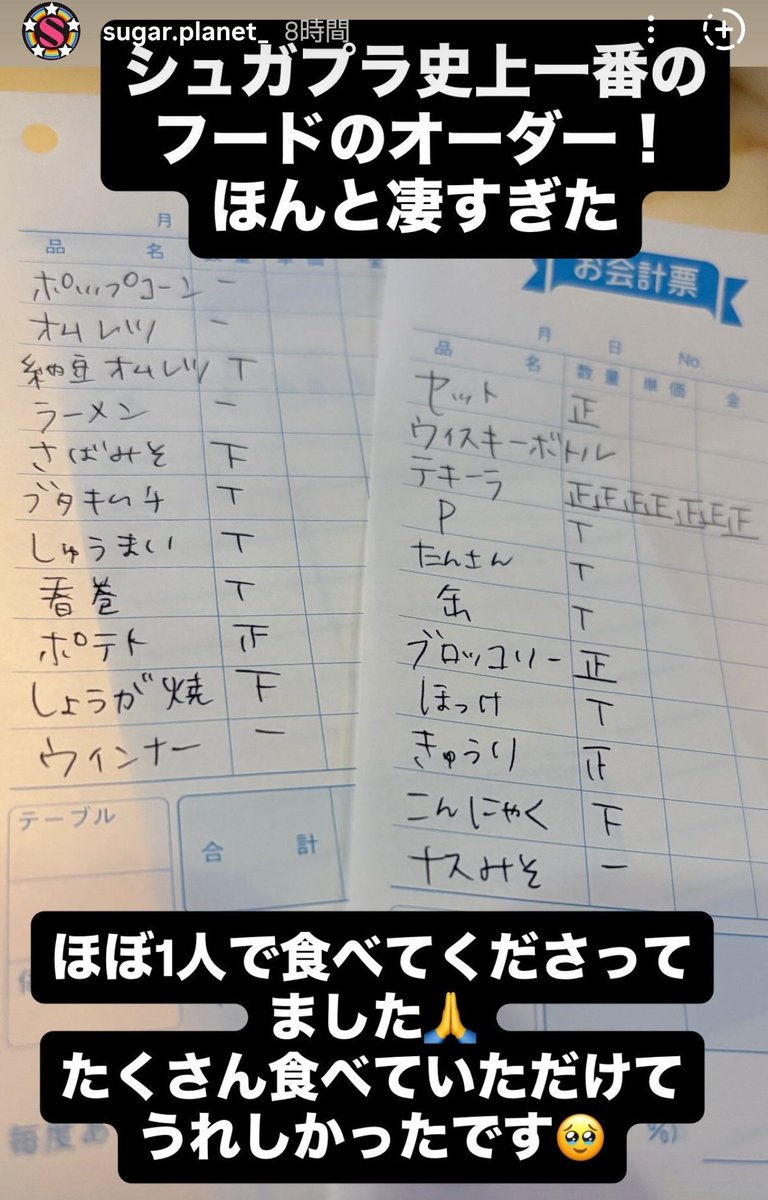 sugar.planet_ 8時間
シュガプラ史上一番の
フードのオーダー!
ほんと凄すぎた
月
品 名
ポップコーン 一
オムレツ 一
納豆オムレツ T
ラーメン 一
さばみそ 下
ブタキムチ T
しゅうまい T
春巻 T
ポテト 正
しょうが焼 下
ウィンナー 一
テーブル
合 計
お会計票
月 日 No.
品 名 数量 単価 金
セット 正
ウィスキーボトル
テキーラ 正正正正正正正
P T
たんさん T
缶 T
ブロッコリー 正
ほっけ T
きゅうり 正
こんにゃく 下
ナスみそ 一
ほぼ1人で食べてくださって
ました🙏
たくさん食べていただけて
うれしかったです🥹
毎度あ
%)